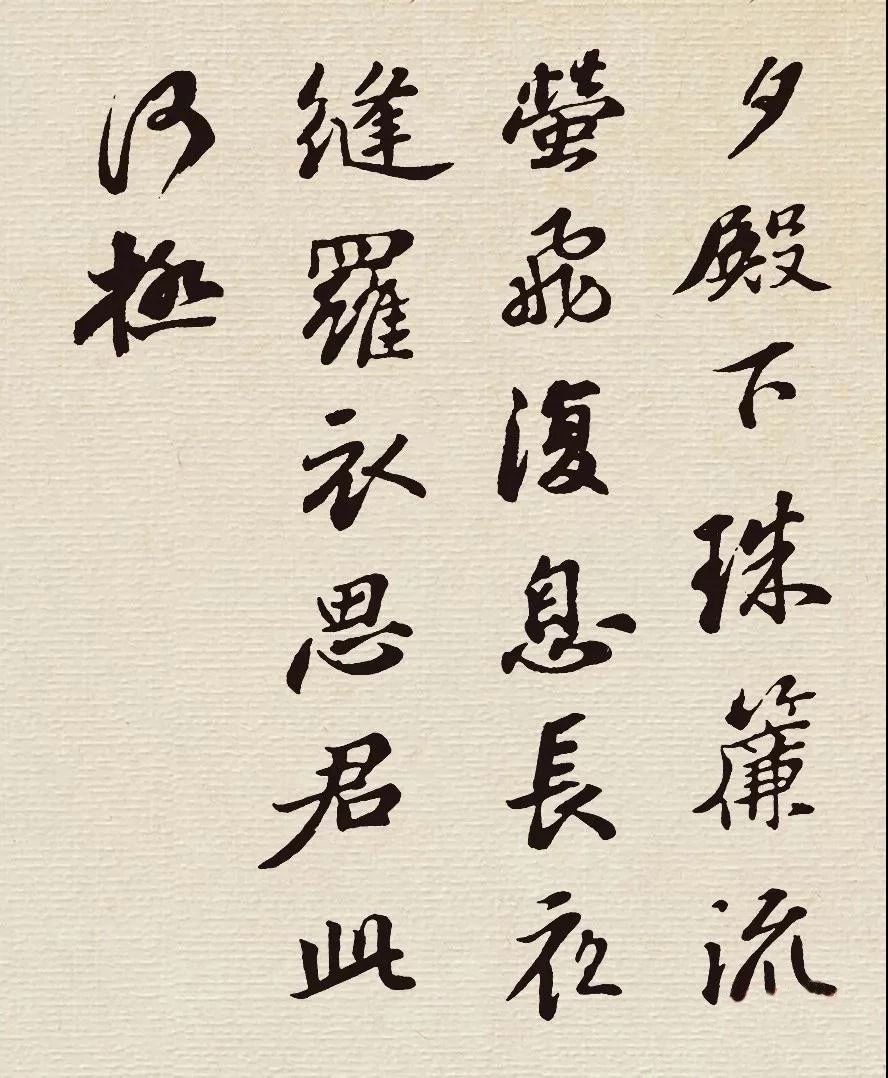 夕殿下珠簾流
螢飛復息長夜
縫羅衣思君此
何極